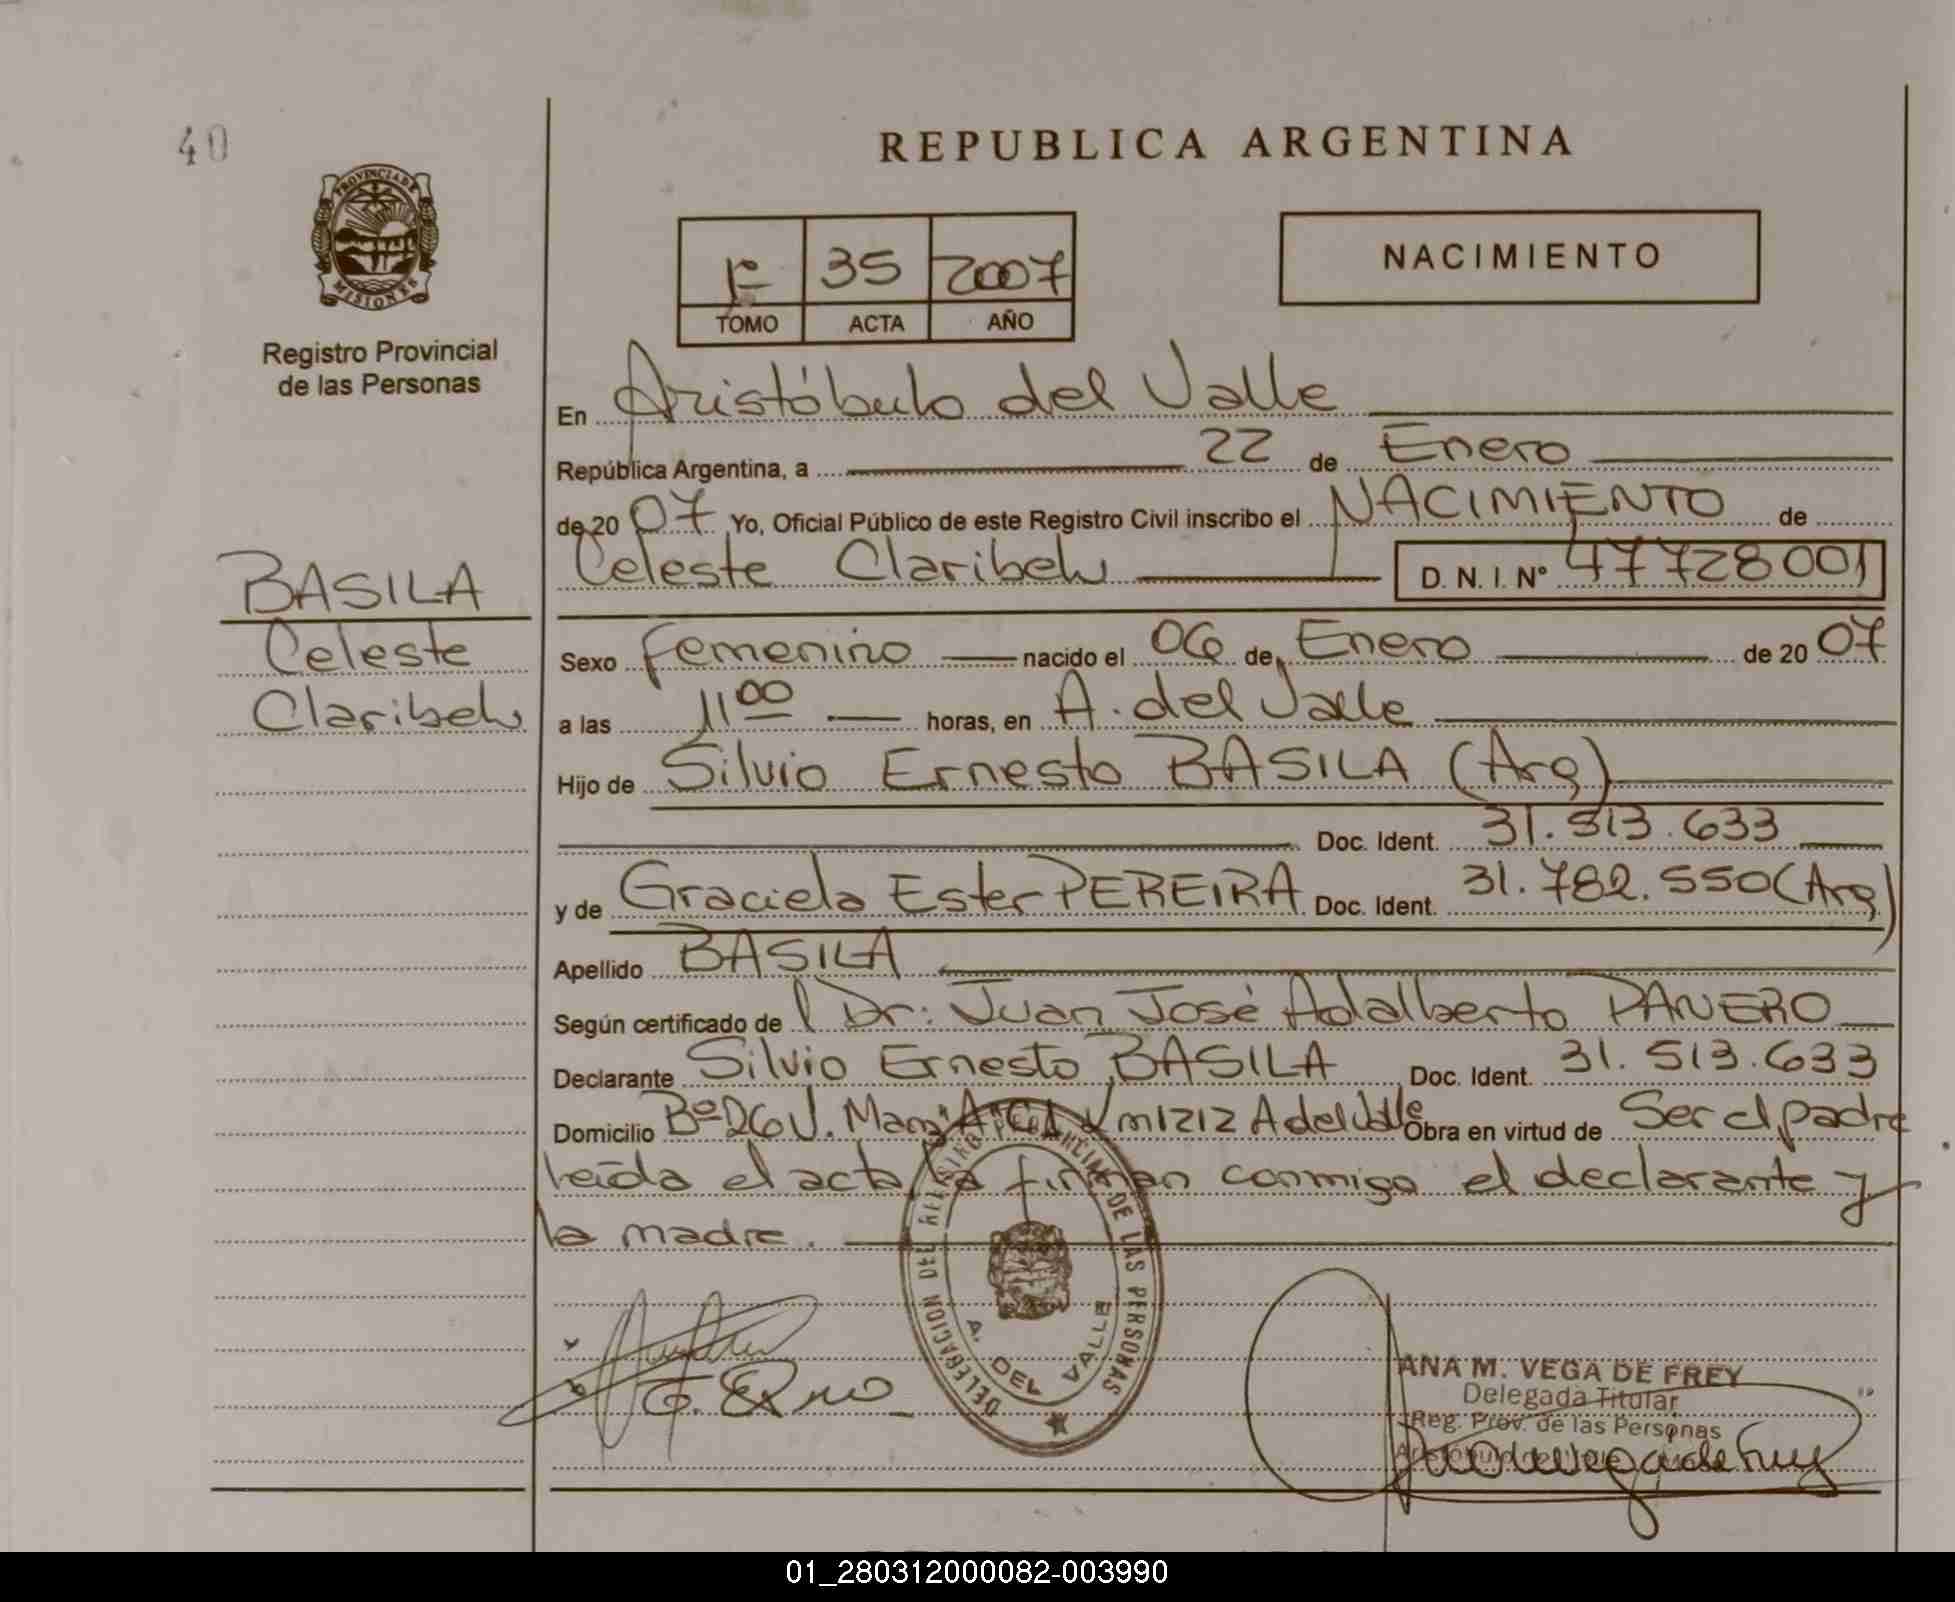 40
PROVINCIA DE
MISIONES
Registro Provincial
de las Personas
REPUBLICA ARGENTINA
1º 35 2007
TOMO ACTA AÑO
NACIMIENTO
En Aristóbulo del Valle
República Argentina, a 22 de Enero
de 20 07 Yo, Oficial Público de este Registro Civil inscribo el NACIMIENTO de
Celeste Claribel D. N. I. Nº 47728001
BASILA
Celeste
Claribel
Sexo femenino nacido el 06 de Enero de 20 07
a las 11 00 horas, en A. del Valle
Hijo de Silvio Ernesto BASILA (Arg)
Doc. Ident. 31.513.633
y de Graciela Ester PEREIRA Doc. Ident. 31.782.550 (Arg)
Apellido BASILA
Según certificado de Dr: Juan José Adalberto PANERO
Declarante Silvio Ernesto BASILA Doc. Ident. 31.513.633
Domicilio Bº 26 V. Manz "A" Km 1212 A del Valle Obra en virtud de Ser el padre
leída el acta la firman conmigo el declarante y
la madre.
DELEGACION DEL REGISTRO PROVINCIAL DE LAS PERSONAS
A. DEL VALLE
ANA M. VEGA DE FREY
Delegada Titular
Reg. Prov. de las Personas
01_280312000082-003990